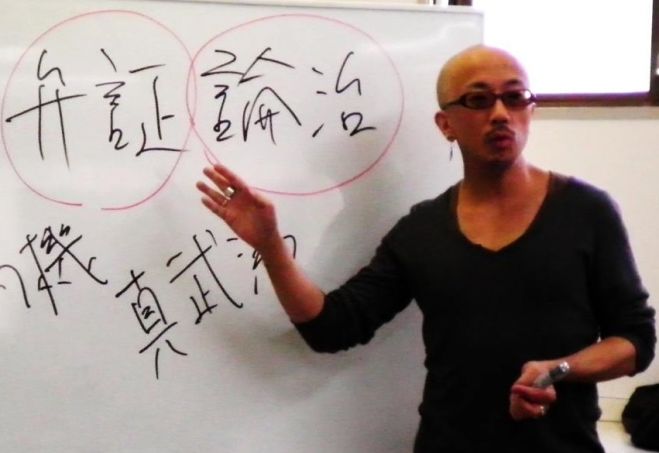 弁証 論治
機
真武